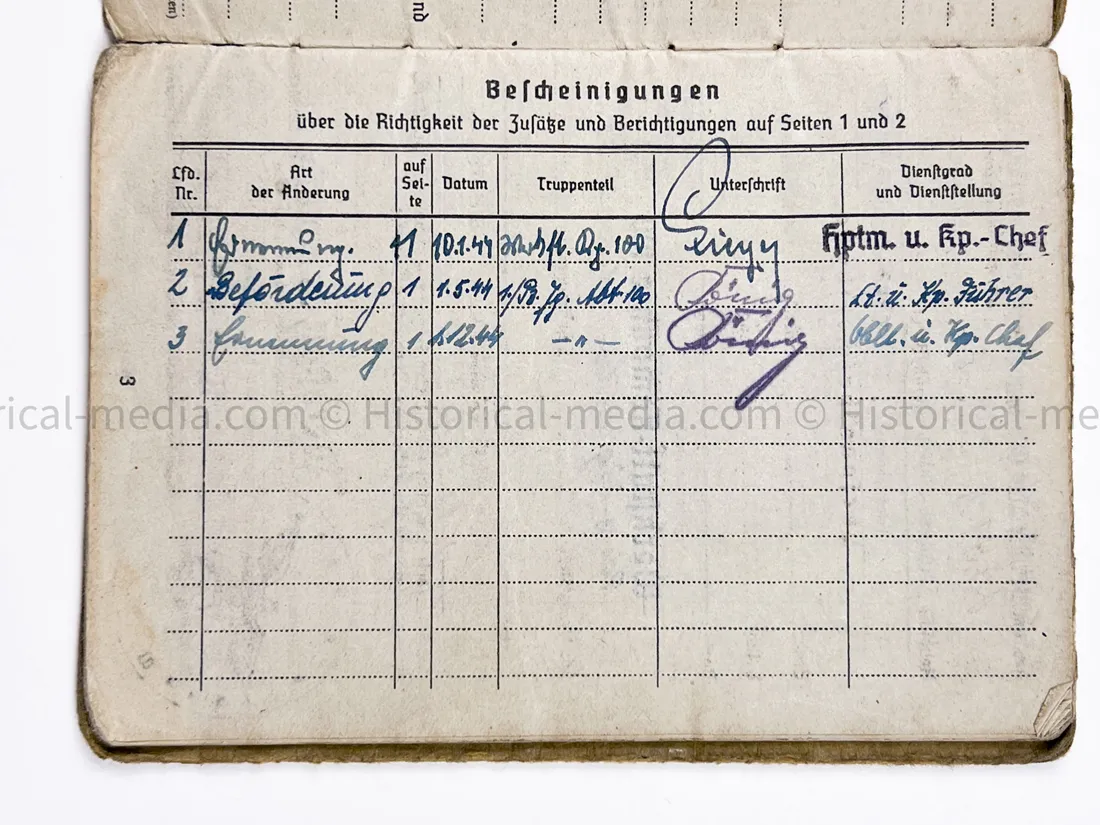 en)
und
Bescheinigungen
über die Richtigkeit der Zusätze und Berichtigungen auf Seiten 1 und 2
Lfd. Nr. Art der Änderung auf Sei-te Datum Truppenteil Unterschrift Dienstgrad und Dienststellung
1 Ernennung. 1 10.1.44 100 Hptm. u. Kp.-Chef
2 Beförderung 1 1.5.44 1./Pz. Jg. Abt. 100 König Lt. u. Kp. Führer
3 Ernennung 1 1.12.44 — " — König Oblt. u. Kp. Chef
3
rical-media.com © Historical-media.com © Historical-me